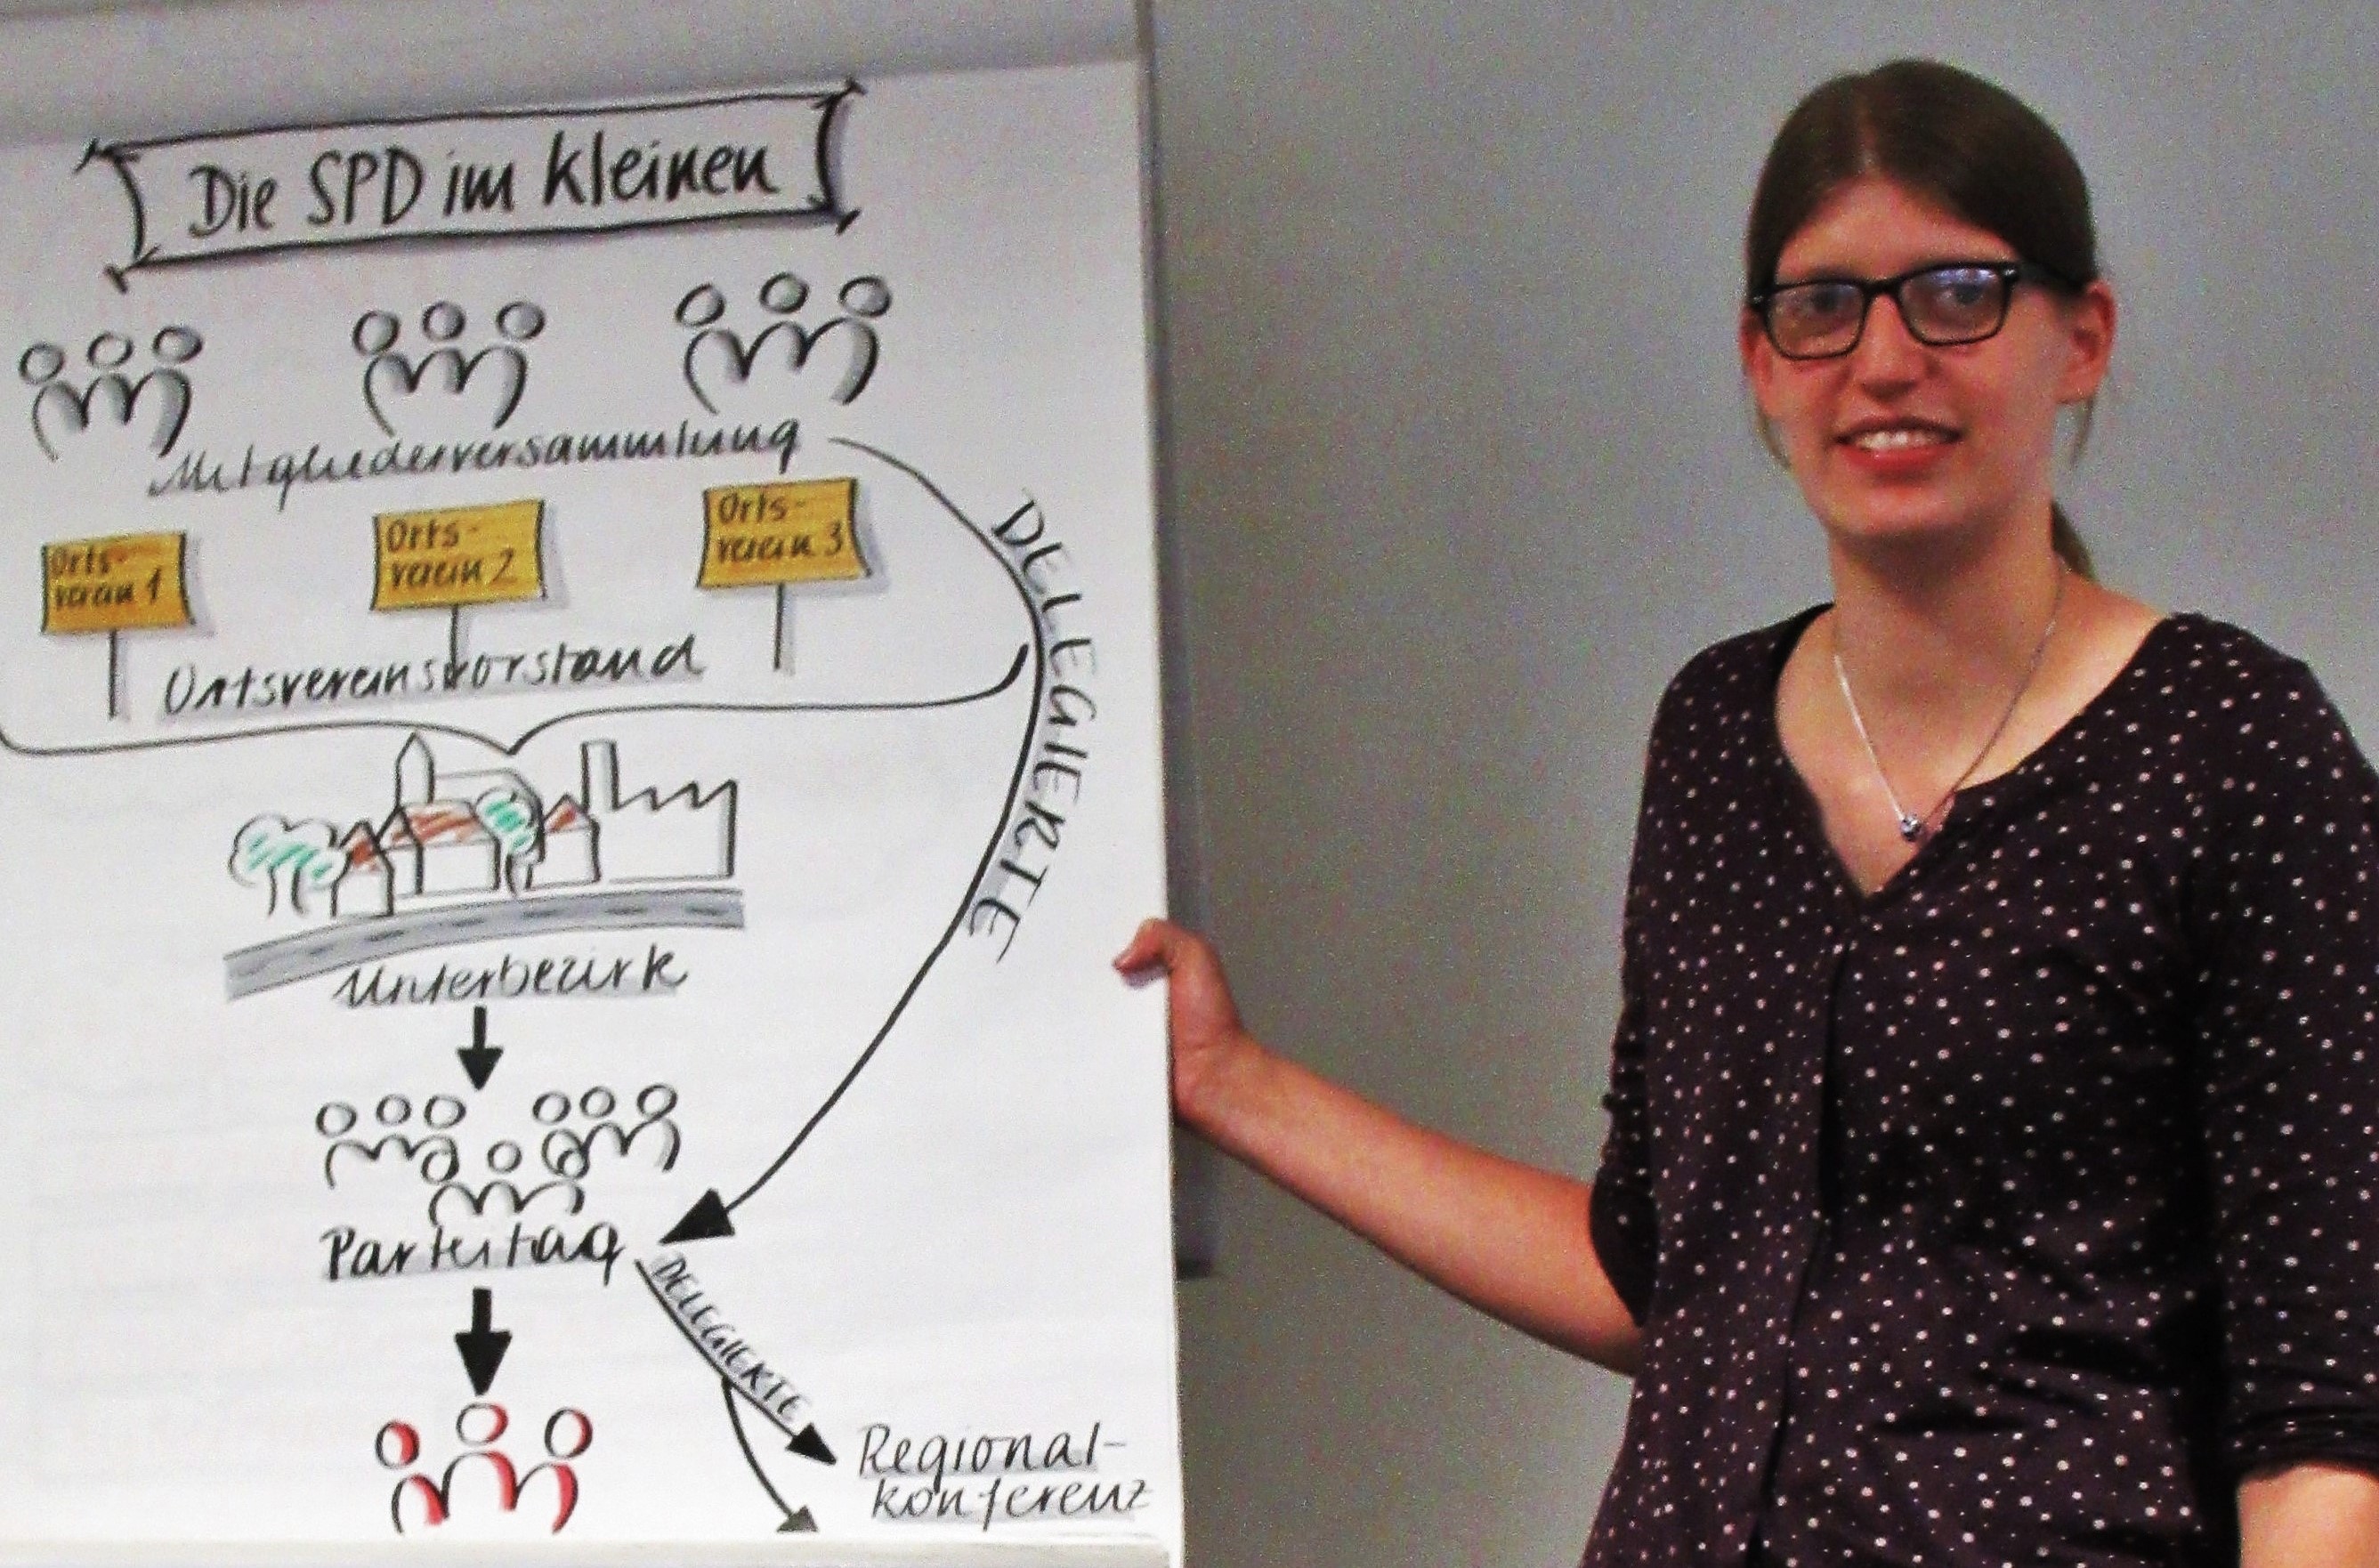 Die SPD im kleinen
Mitgliederversammlung
Orts-
verein 1
Orts-
verein 2
Orts-
verein 3
Ortsvereinsvorstand
DELEGIERTE
Unterbezirk
Parteitag
DELEGIERTE
Regional-
konferenz